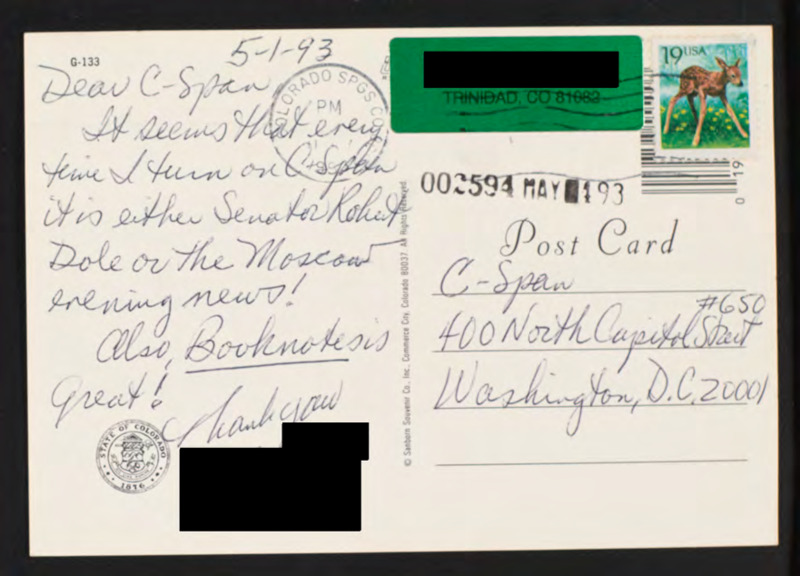 G-133
5-1-93
Dear C-Span
It seems that every
time I turn on C-Span
it is either Senator Robert
Dole or the Moscow
evening news!
Also, Booknotes is
Great!
Thank you
STATE OF COLORADO
1876
COLORADO SPGS CO
PM
© Sanborn Souvenir Co., Inc., Commerce City, Colorado 80037 All Rights Reserved
TRINIDAD, CO 81082
19 USA
002594 MAY 493
0 19
Post Card
C-Span
#650
400 North Capitol Street
Washington, D.C. 20001